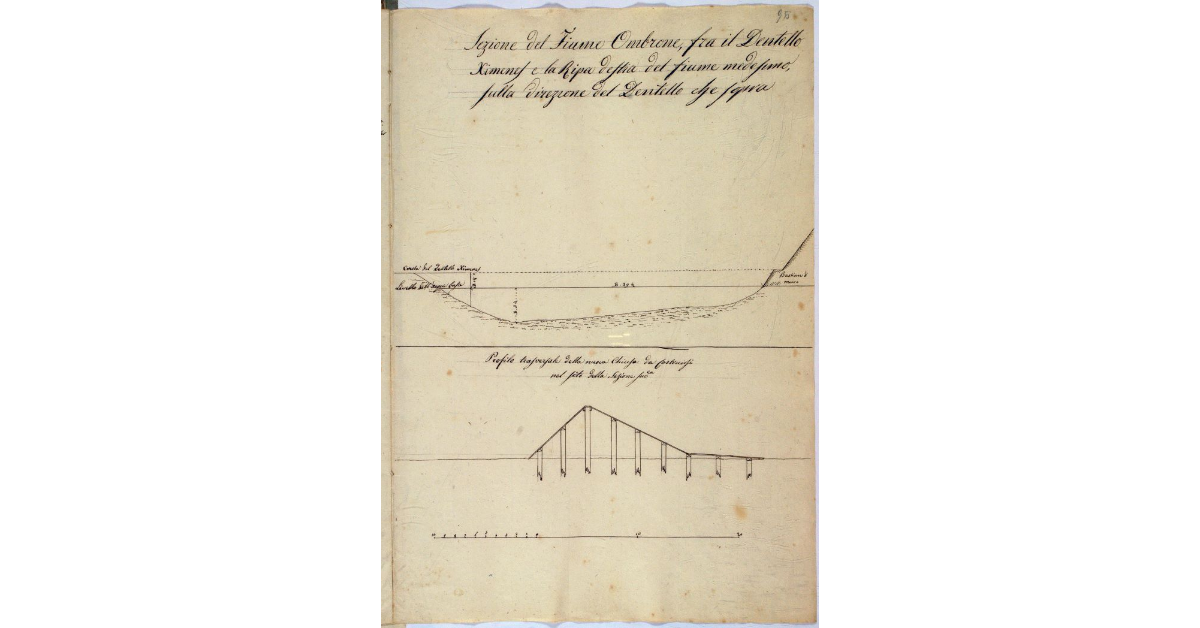 95
Sezione del Fiume Ombrone, fra il Dentello
Ximenes e la Ripa destra del fiume medesimo,
sulla direzione del Dentello che sopra
del Dentello Ximenes
Livello dell' acque basse
Bastione di
muro
Profilo trasversale della nuova Chiusa da costruirsi
nel sito della Sezione sud.a